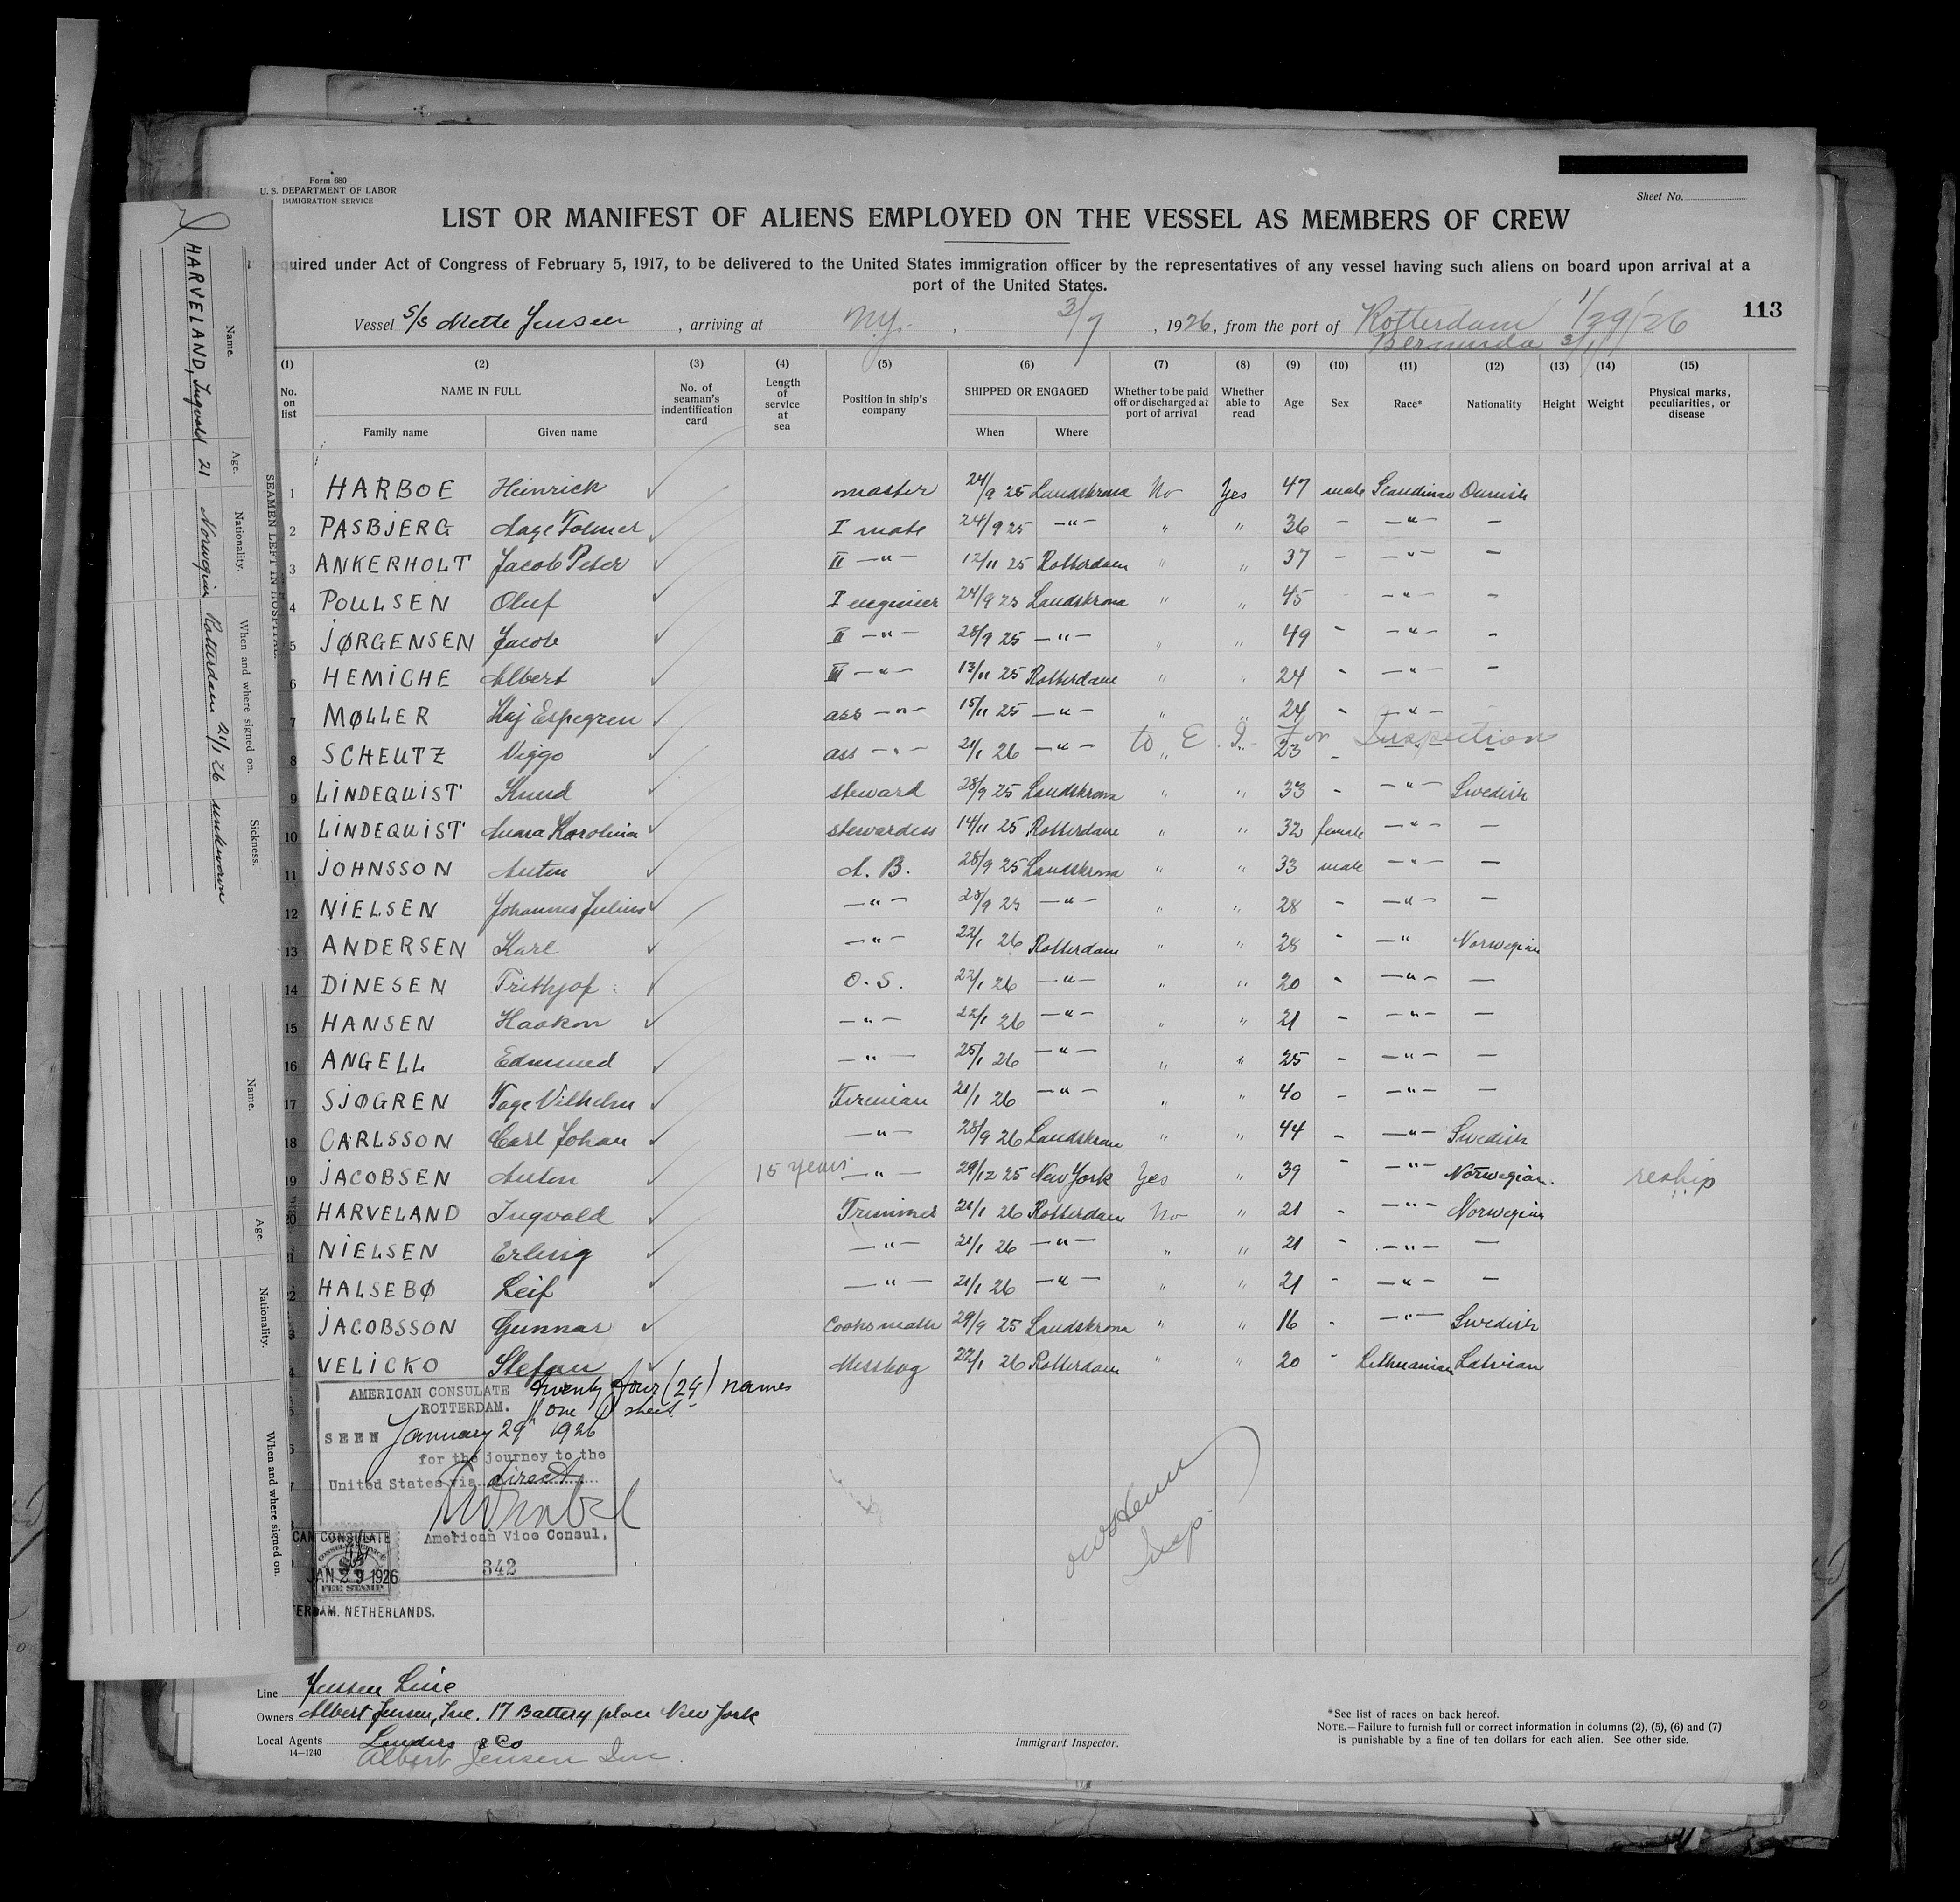 Form 680
U. S. DEPARTMENT OF LABOR
IMMIGRATION SERVICE
Sheet No.
LIST OR MANIFEST OF ALIENS EMPLOYED ON THE VESSEL AS MEMBERS OF CREW
quired under Act of Congress of February 5, 1917, to be delivered to the United States immigration officer by the representatives of any vessel having such aliens on board upon arrival at a
port of the United States.
113
Vessel S/S Mette Jensen, arriving at N.Y., 3/7, 1926, from the port of Rotterdam 1/29/26
Bermuda
(1) (2) (3) (4) (5) (6) (7) (8) (9) (10) (11) (12) (13) (14) (15)
No. on list NAME IN FULL Family name Given name No. of seaman's indentification card Length of service at sea Position in ship's company SHIPPED OR ENGAGED When Where Whether to be paid off or discharged at port of arrival Whether able to read Age Sex Race* Nationality Height Weight Physical marks, peculiarities, or disease
1 HARBOE Heinrich master 24/9 25 Landskrona No Yes 47 male Scandinav Danish
2 PASBJERG Aage Folmer I mate 24/9 25 —"— " " 36 - —"— —
3 ANKERHOLT Jacob Peter II —"— 12/11 25 Rotterdam " " 37 - —"— —
4 POULSEN Oluf I engineer 24/9 25 Landskrona " " 45 - —"— —
5 JØRGENSEN Jacob II —"— 28/9 25 —"— " " 49 - —"— -
6 HEMICHE Albert III —"— 13/11 25 Rotterdam " " 24 - —"— —
7 MØLLER Kaj Espegren ass —"— 15/11 25 —"— " " 24 - —"—
8 SCHEUTZ Viggo ass —"— 21/1 26 —"— " " 23 - —"— —
to E. I. for Inspection
9 LINDEQUIST Knud steward 28/9 25 Landskrona " " 33 - —"— Swedish
10 LINDEQUIST Anna Karolina stewardess 14/11 25 Rotterdam " " 32 female —"— —
11 JOHNSSON Anton A. B. 28/9 25 Landskrona " " 33 male —"— —
12 NIELSEN Johannes Julius —"— 28/9 25 —"— " " 28 - —"— —
13 ANDERSEN Karl —"— 22/1 26 Rotterdam " " 28 - —" Norwegian
14 DINESEN Frithjof O. S. 22/1 26 —"— " " 20 - —"— —
15 HANSEN Haakon —"— 22/1 26 —"— " " 21 - —"— —
16 ANGELL Edmund —"— 25/1 26 —"— " " 25 - —"— —
17 SJØGREN Tage Vilhelm Fireman 21/1 26 —"— " " 40 - —"— —
18 CARLSSON Carl Johan —"— 28/9 26 Landskron " " 44 - —"— Swedish
19 JACOBSEN Anton 15 years —"— 29/12 25 New York Yes " 39 - —"— Norwegian. reship
20 HARVELAND Ingvald Trimmer 21/1 26 Rotterdam No " 21 - —"— Norwegian
1 NIELSEN Erling —"— 21/1 26 —"— " " 21 - —"— —
2 HALSEBØ Leif —"— 21/1 26 —"— " " 21 - —"— —
3 JACOBSSON Gunnar Cooksmath 29/9 25 Landskrona " " 16 - —"— Swedish
4 VELICKO Stefan Messbog 22/1 26 Rotterdam " " 20 - Lithuanian Latvian
AMERICAN CONSULATE twenty four (24) names
ROTTERDAM. one sheet
SEEN January 29th 1926
for the journey to the
United States via direct
American Vice Consul.
342
CAN CONSULATE
JAN 29 1926
FEE STAMP
ERDAM. NETHERLANDS.
Insp.
Line Jensen Line
Owners Albert Jensen, Inc. 17 Battery place New York
Local Agents Lunders & Co
Albert Jensen Inc.
14—1240
Immigrant Inspector.
*See list of races on back hereof.
NOTE.—Failure to furnish full or correct information in columns (2), (5), (6) and (7)
is punishable by a fine of ten dollars for each alien. See other side.
SEAMEN LEFT IN HOSPITAL.
Name. Age. Nationality. When and where signed on. Sickness.
HARVELAND, Ingvald 21 Norwegian Rotterdam 21/1 26 unknown
Name. Age. Nationality. When and where signed on.